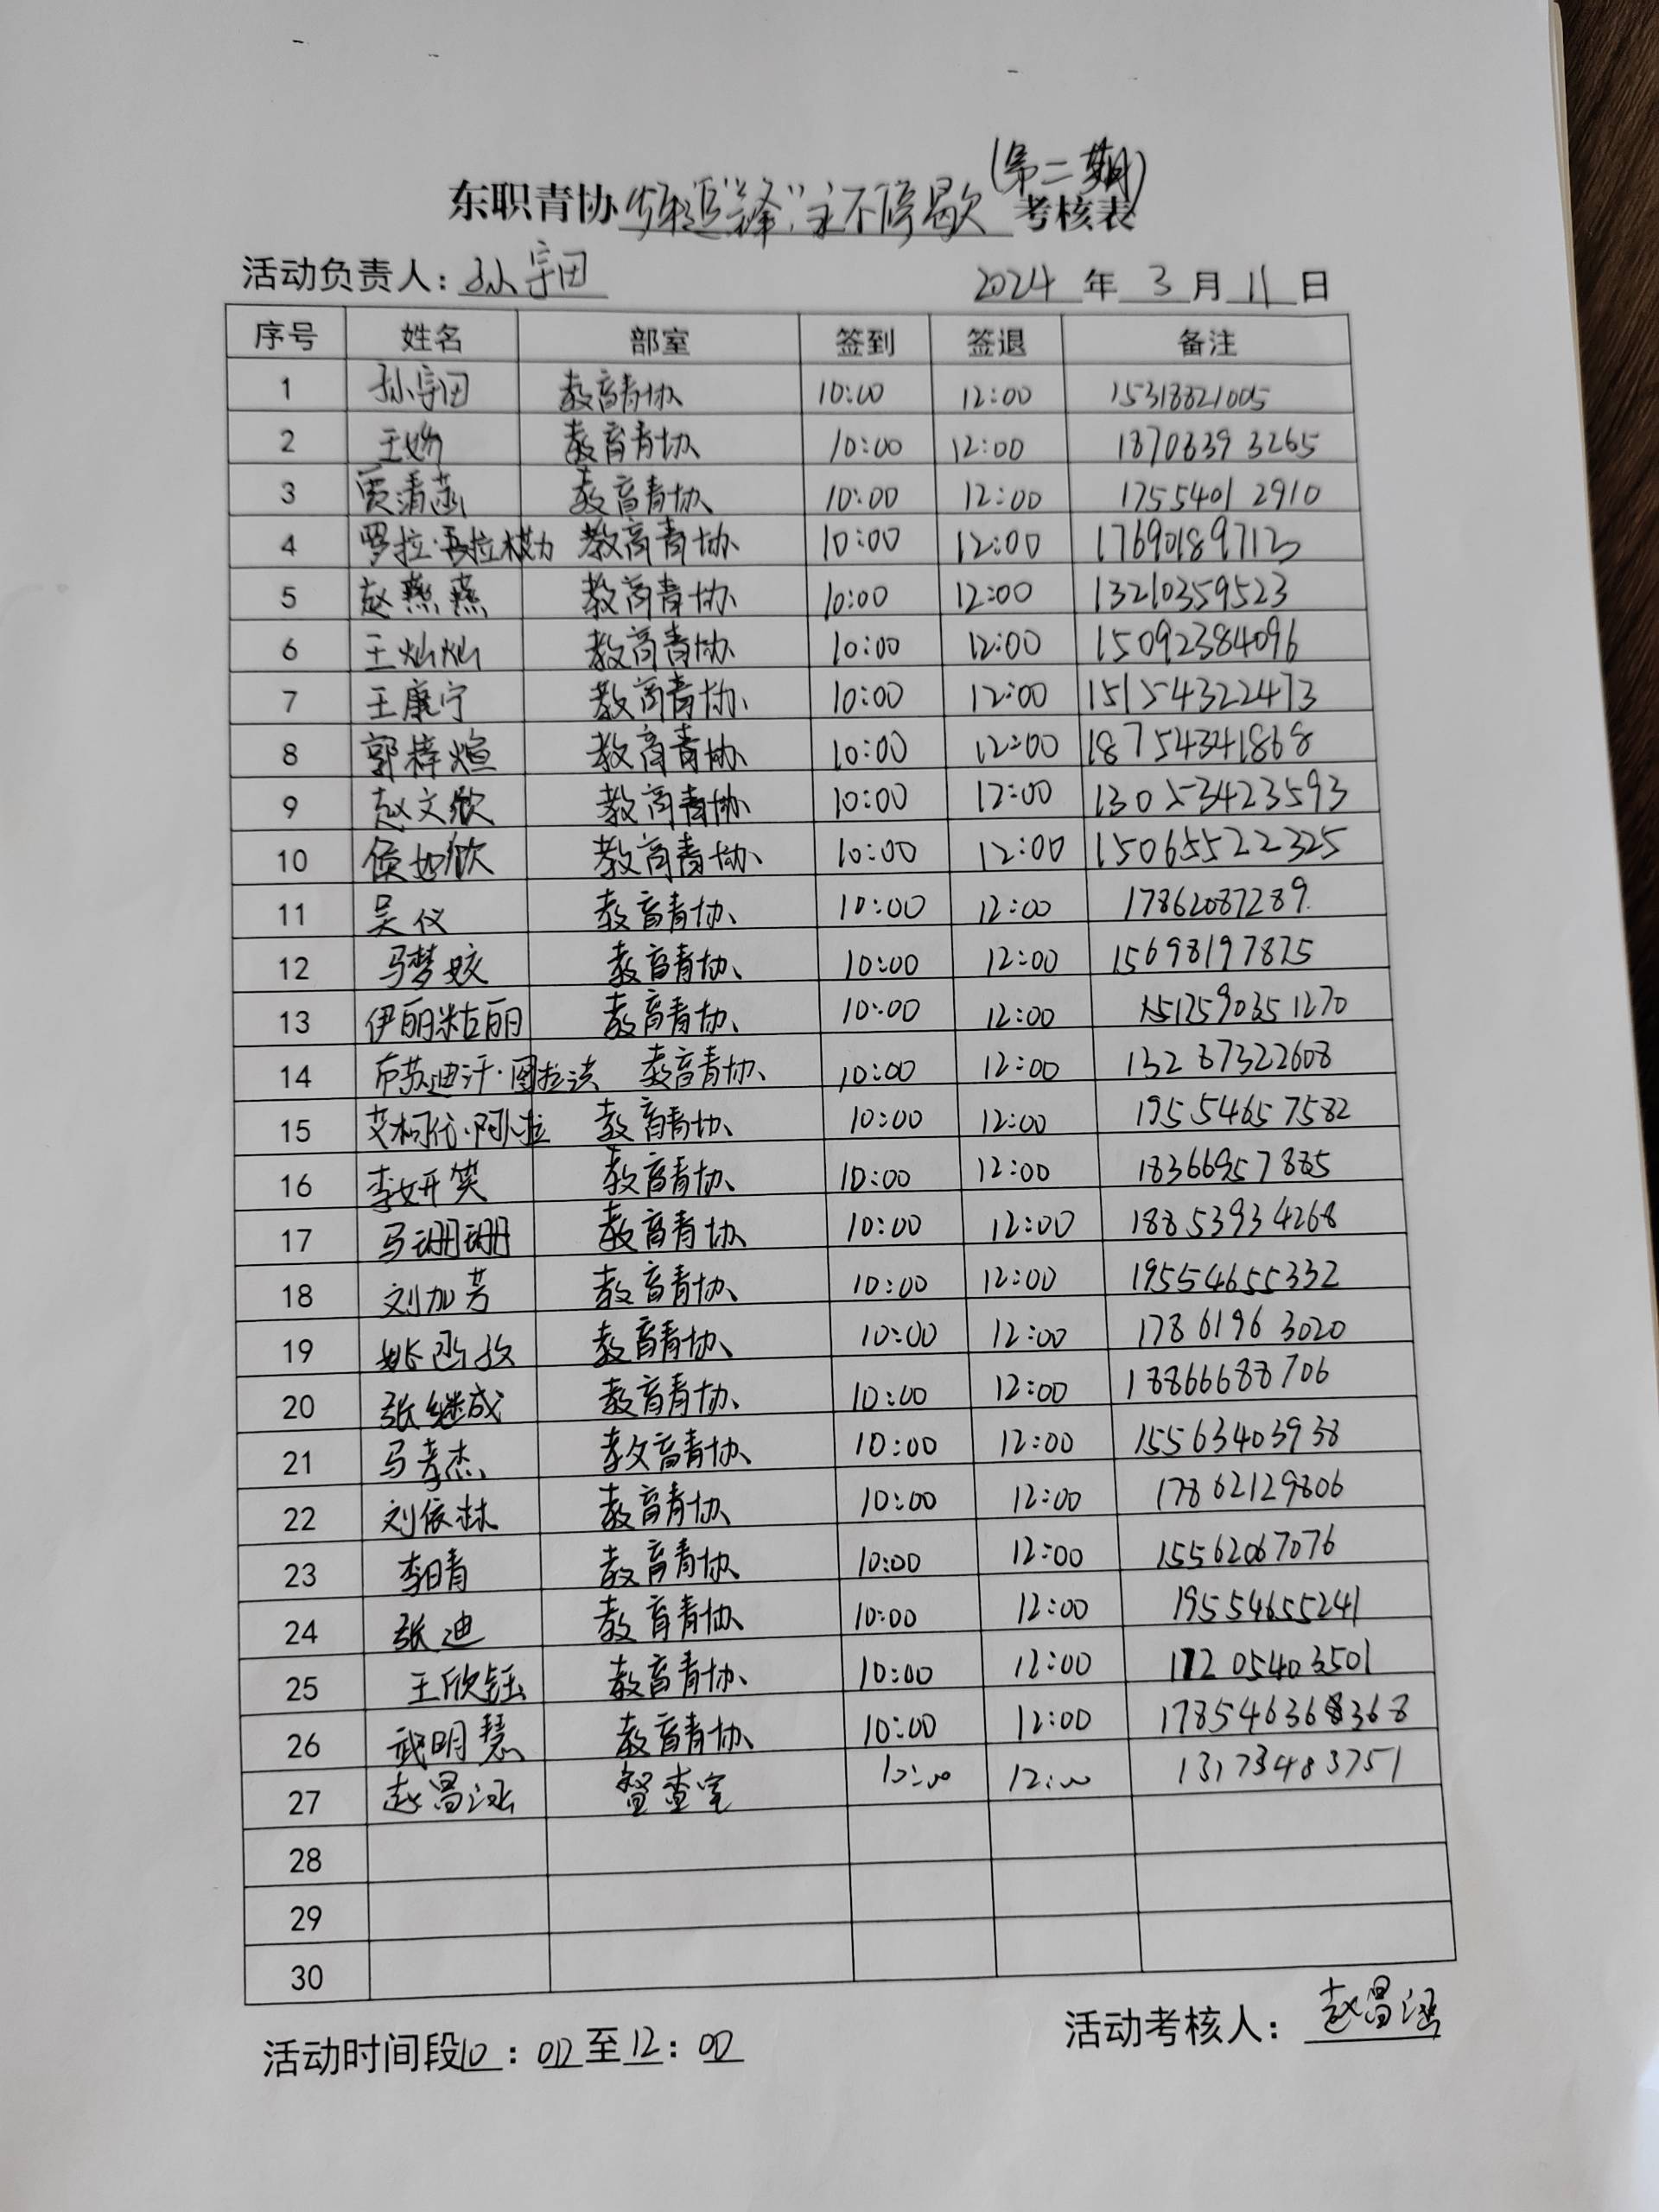 (第二期)
东职青协步履追“锋”,永不停歇考核表
活动负责人:孙宇田 2024年3月11日
序号 姓名 部室 签到 签退 备注
1 孙宇田 教育青协 10:00 12:00 15318821005
2 王妙 教育青协 10:00 12:00 18706393265
3 贾清菡 教育青协 10:00 12:00 17554012910
4 教育青协 10:00 12:00 17690189713
5 赵燕燕 教育青协 10:00 12:00 13210359523
6 王灿灿 教育青协 10:00 12:00 15092384096
7 王康宁 教育青协 10:00 12:00 15154322473
8 郭梓煊 教育青协 10:00 12:00 18754341868
9 赵文欣 教育青协 10:00 12:00 13053423593
10 侯如欣 教育青协 10:00 12:00 15065522325
11 吴仪 教育青协 10:00 12:00 17862087289
12 马梦姣 教育青协 10:00 12:00 15698197875
13 伊丽米古丽 教育青协 10:00 12:00
14 布苏迪汗·图拉洪 教育青协 10:00 12:00 13287322608
15 教育青协 10:00 12:00 19554657582
16 李妍笑 教育青协 10:00 12:00 18366957885
17 马珊珊 教育青协 10:00 12:00 18853934268
18 刘加芳 教育青协 10:00 12:00 19554655332
19 教育青协 10:00 12:00 17861963020
20 张继成 教育青协 10:00 12:00 18866688706
21 马孝杰 教育青协 10:00 12:00 15563403938
22 刘依林 教育青协 10:00 12:00 17862129806
23 李晴 教育青协 10:00 12:00 15562067076
24 张迪 教育青协 10:00 12:00 19554655241
25 王欣钰 教育青协 10:00 12:00 17205403501
26 武明慧 教育青协 10:00 12:00 178546368368
27 赵昌涵 督查室 10:00 12:00 13173483751
28
29
30
活动时间段10:00至12:00 活动考核人:赵昌涵